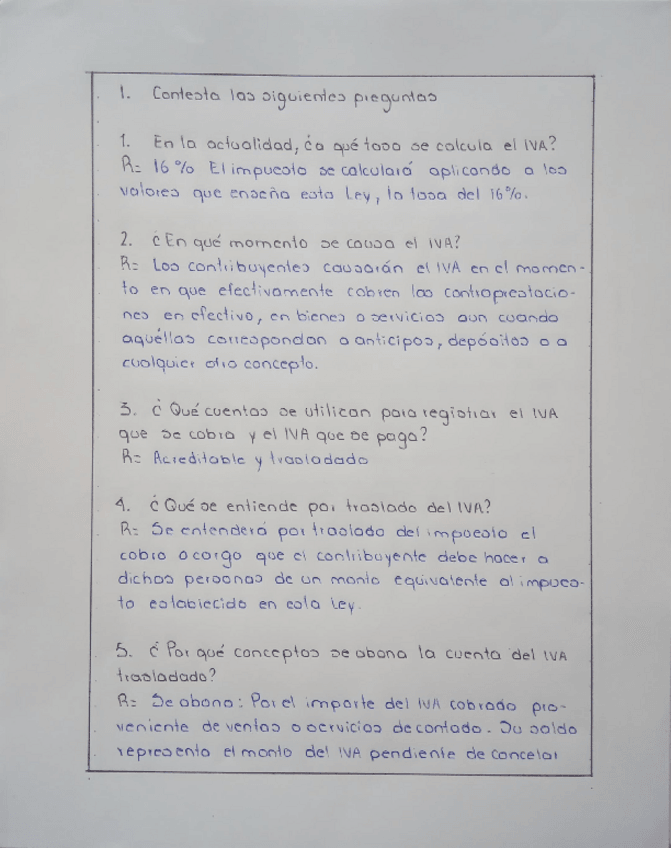 1. Contesta las siguientes preguntas
1. En la actualidad, ¿a qué tasa se calcula el IVA?
R= 16% El impuesto se calculará aplicando a los
valores que enseña esta Ley, la tasa del 16%.
2. ¿En qué momento se causa el IVA?
R= Los contribuyentes causarán el IVA en el momen-
to en que efectivamente cobren las contraprestacio-
nes en efectivo, en bienes o servicios aun cuando
aquéllas correspondan a anticipos, depósitos o a
cualquier otro concepto.
3. ¿Qué cuentas se utilizan para registrar el IVA
que se cobra y el IVA que se paga?
R= Acreditable y trasladado
4. ¿Qué se entiende por traslado del IVA?
R= Se entenderá por traslado del impuesto el
cobro o cargo que el contribuyente debe hacer a
dichas personas de un monto equivalente al impues-
to establecido en esta Ley.
5. ¿Por qué conceptos se abona la cuenta del IVA
trasladado?
R= Se abona: Por el importe del IVA cobrado pro-
veniente de ventas o servicios de contado. Su saldo
representa el monto del IVA pendiente de cancelar